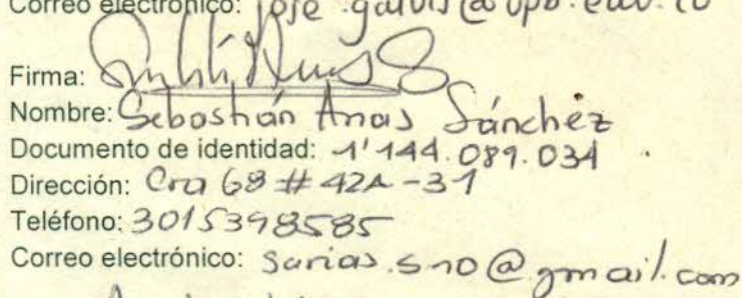 Correo electrónico: jose.galvis@upb.edu.co
Firma:
Nombre: Sebastián Arias Sánchez
Documento de identidad: 1'144.089.034
Dirección: Cra 68 # 42A-31
Teléfono: 3015398585
Correo electrónico: sarias.sno@gmail.com